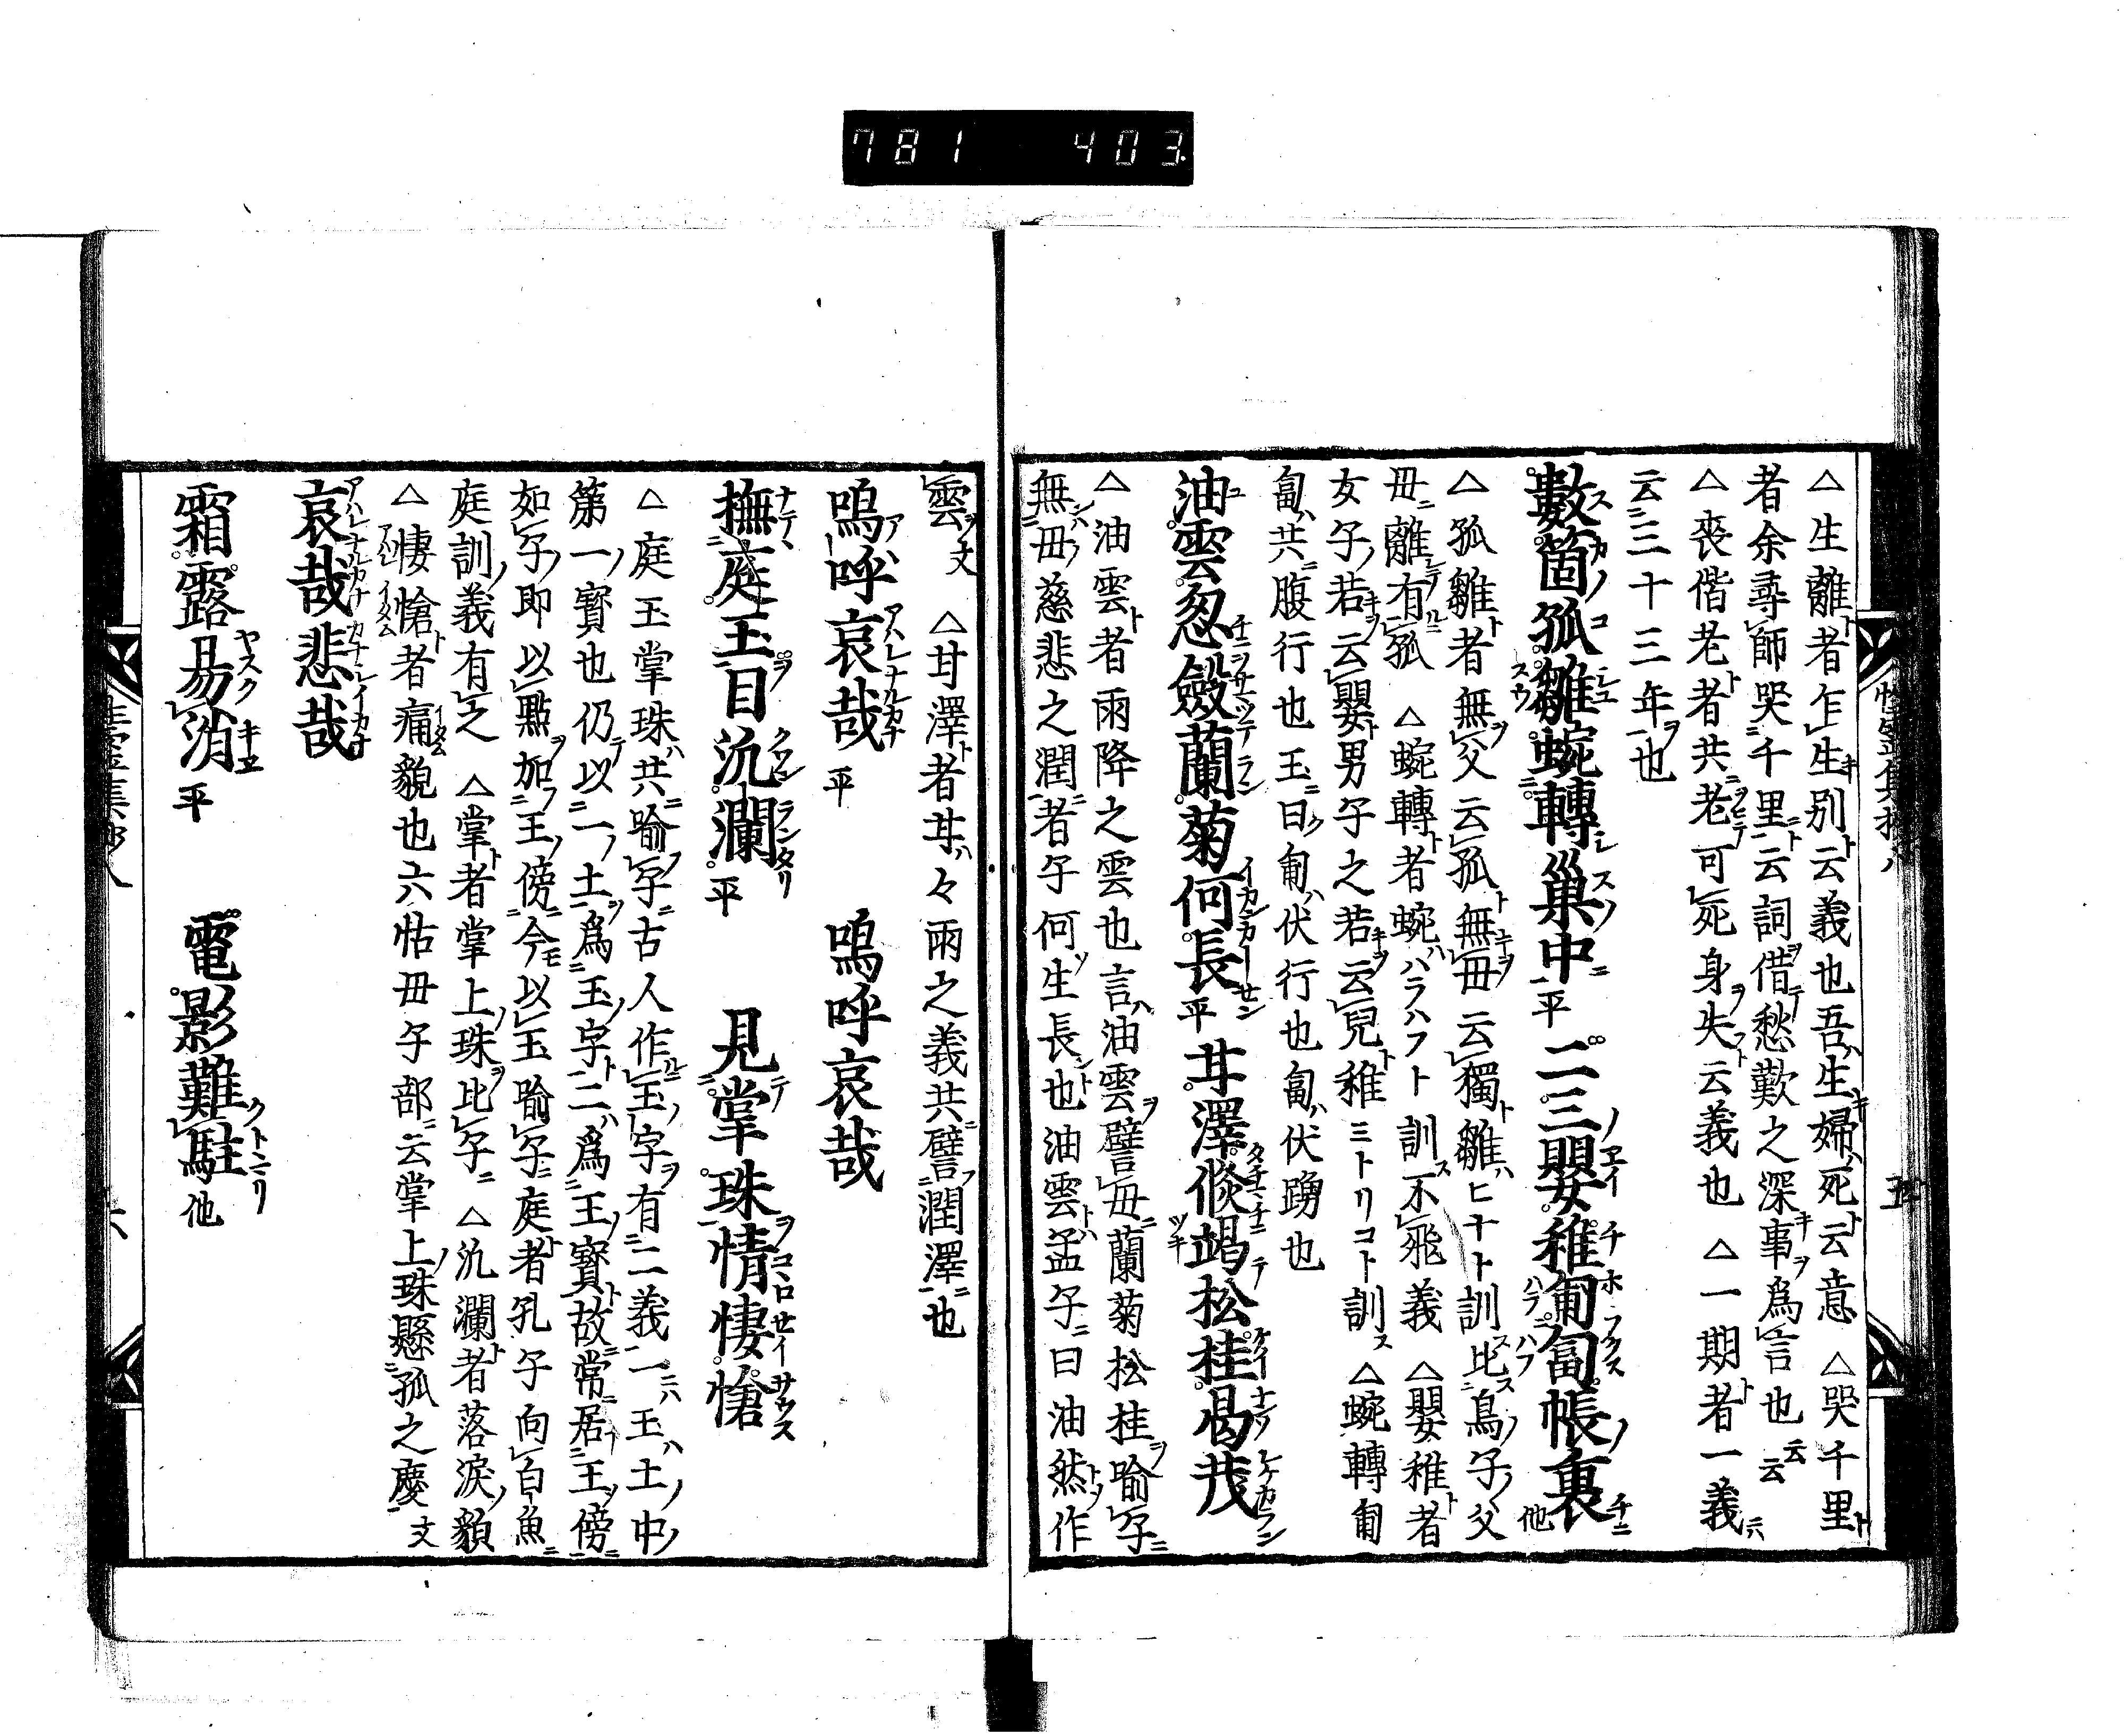 781 403
△生離者乍生別云義也吾生婦死云意 △哭千里
者余尋師哭千里云詞借愁歎之深事爲言也云云
△喪偕老者共老可死身失云義也 △一期者一義
云三十三年也
數箇孤雛蜿轉巢中平 二三嬰稚匍匐帳裏他
△孤雛者無父云孤無毋云獨雛ヒナト訓比鳥子父
毋離有孤 △蜿轉者蜿ハラハフト訓不飛義 △嬰稚者
女子若云嬰男子之若云兒稚ミトリコト訓 △蜿轉匍
匐共腹行也玉曰匍伏行也匐伏踴也
油雲忽斂蘭菊何長平 甘澤倐竭松桂曷茂
△油雲者雨降之雲也言油雲譬毋蘭菊松桂喻子
無毋慈悲之潤者子何生長也油雲孟子曰油然作
雲文 △甘澤者甘々雨之義共譬潤澤也
嗚呼哀哉平 嗚呼哀哉
撫庭玉目汍瀾平 見掌珠情悽愴
△庭玉掌珠共喻子古人作玉字有二義一玉土中
第一寳也仍以一土爲玉字二爲王寳故常居王傍
如子即以點加王傍今以玉喻子庭者孔子向白魚
庭訓義有之 △掌者掌上珠比子 △汍瀾者落淚貌
△悽愴者痛貌也六帖毋子部云掌上珠懸孤之慶文
哀哉悲哉
霜露易消平 電影難駐他
五
六